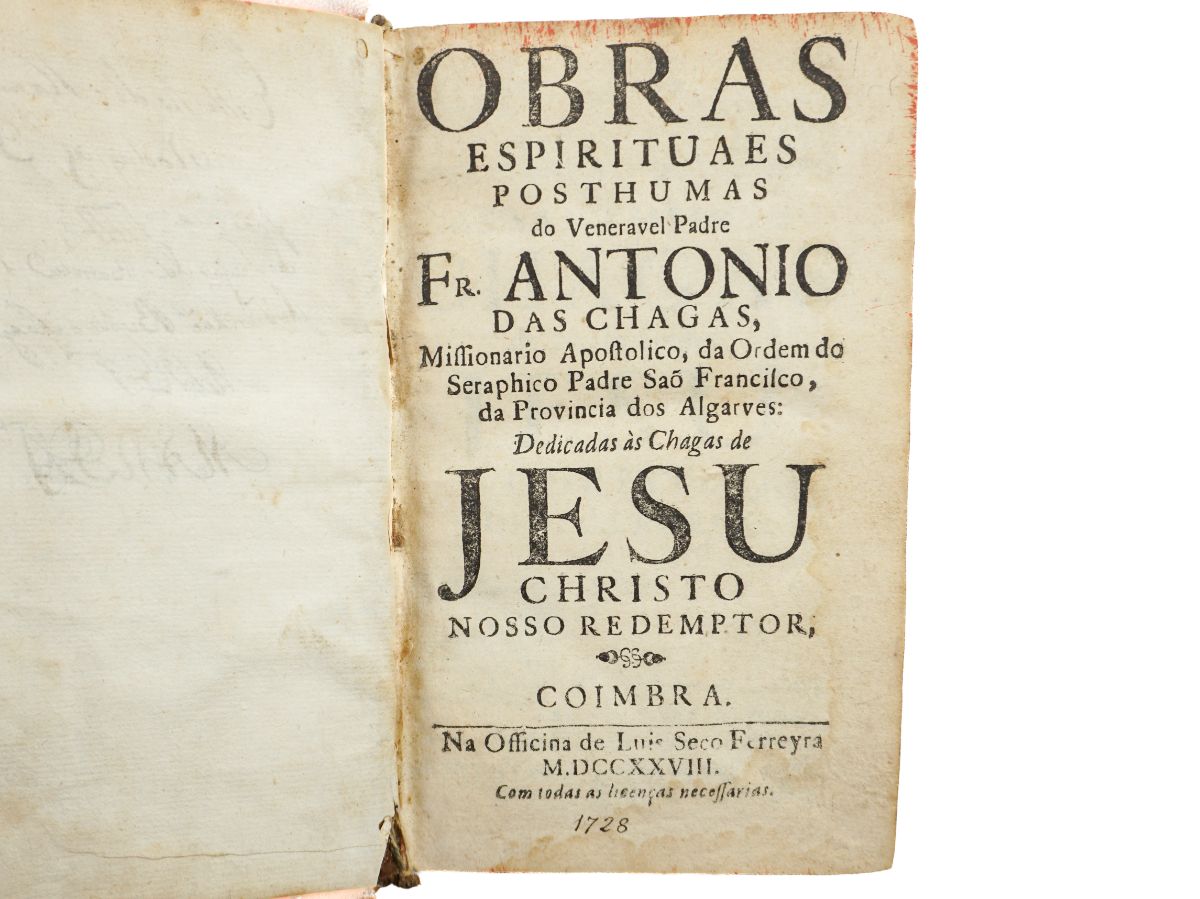 OBRAS
ESPIRITUAES
POSTHUMAS
do Veneravel Padre
FR. ANTONIO
DAS CHAGAS,
Miſſionario Apoſtolico, da Ordem do
Seraphico Padre Saõ Franciſco,
da Provincia dos Algarves:
Dedicadas às Chagas de
JESU
CHRISTO
NOSSO REDEMPTOR,
COIMBRA.
Na Officina de Luis Seco Ferreyra
M.DCCXXVIII.
Com todas as licenças neceſſarias.
1728